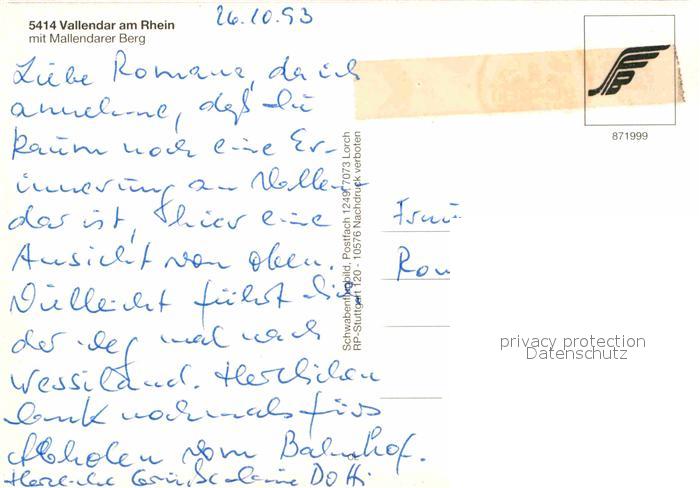 26.10.93
5414 Vallendar am Rhein
mit Mallendarer Berg
Liebe Romana, da ich
annehme, daß Du
kaum noch eine Er-
innerung an Vallen-
dar ist, hier eine
Ansicht von oben.
Vielleicht führt Dich
der Weg mal nach
Wessiland. Herzlichen
Dank nochmals fürs
Abholen vom Bahnhof.
Herzliche Grüße Deine Dotti
Schwabenflugbild, Postfach 1249, 7073 Lorch
RP-Stuttgart 120 - 10576 Nachdruck verboten
871999
Frau
Rom
privacy protection
Datenschutz